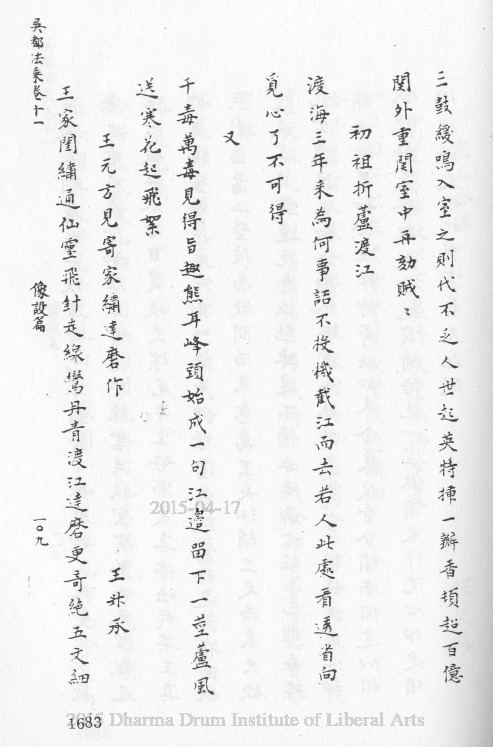 三鼓緩鳴入室之則代不乏人世起英特揷一瓣香頓超百億
関外重関室中再劾賊〻
初祖折蘆渡江
渡海三年来為何事話不投機截江而去若人此處看透省向
覓心了不可得
又
千毒萬毒見得旨趣熊耳峰頭始成一句江邊留下一莖蘆風
送寒花起飛絮
王元方見寄家繡達磨作
王升承
王家閨繡通仙靈飛針走線鴬丹青渡江達磨更奇絶五文細
吳都法乘卷十一
像設篇
一〇九
1683
2015-04-17
2015 Dharma Drum Institute of Liberal Arts